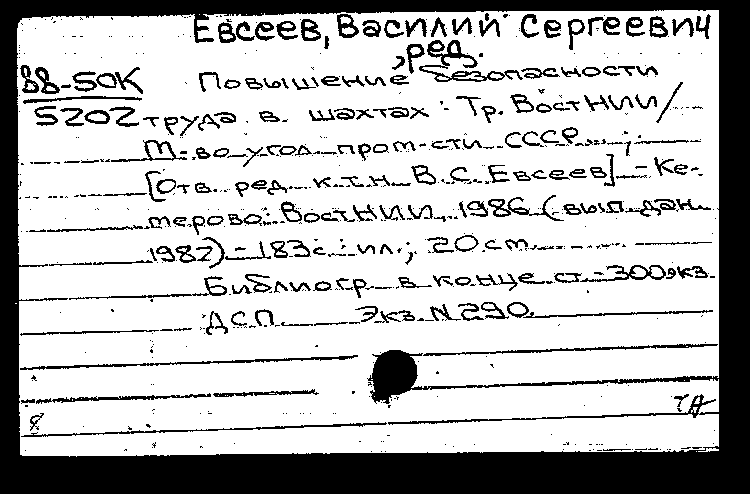 Евсеев, Василий Сергеевич
, ред.
88-50К
5202
Повышение безопасности
труда в шахтах : Тр. ВостНИИ/
М-во угол. пром-сти СССР...;
[Отв. ред. к.т.н. В.С. Евсеев] - Ке-
мерово: ВостНИИ, 1986 (вып. дан.
1987) - 183с. : ил.; 20 см.
Библиогр. в конце ст. - 300 экз.
ДСП. Экз. N 290.
8